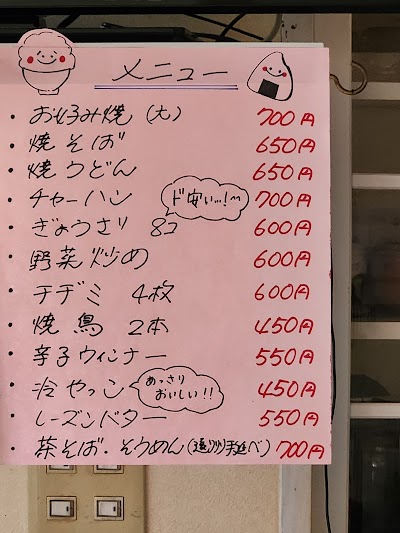 メニュー
・お好み焼(大) 700円
・焼そば 650円
・焼うどん 650円
・チャーハン 700円
ド安い…!
・ぎょうざ 8コ 600円
・野菜炒め 600円
・チヂミ 4枚 600円
・焼鳥 2本 450円
・辛子ウィンナー 550円
・冷やっこ 450円
めっさり
おいしい!!
・レーズンバター 550円
・茶そば・そうめん(手延べ) 700円